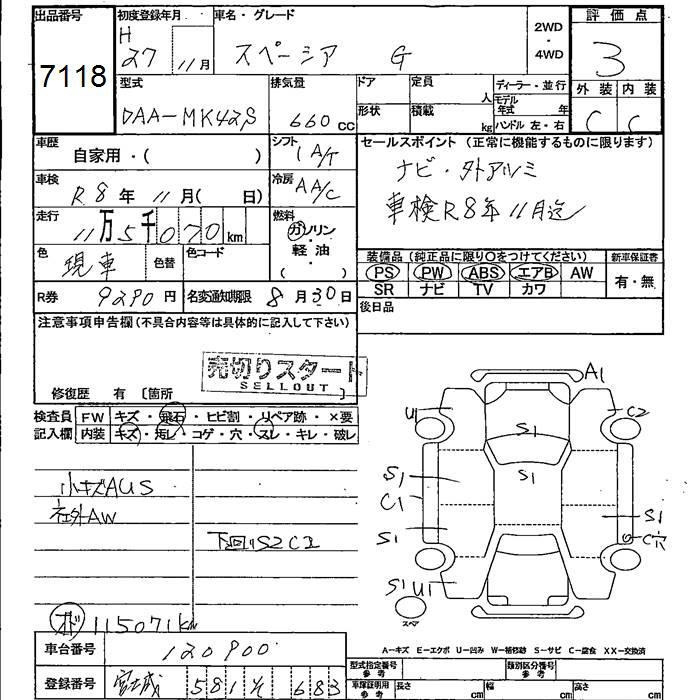 出品番号 7118
初度登録年月 H 27年 11月
車名・グレード スペーシア G
2WD・4WD
評価点 3
外装 C 内装 C
型式 DAA-MK42S
排気量 660cc
ドア 形状
定員 人 積載 kg
ディーラー・並行
モデル年式 年
ハンドル 左・右
車歴 自家用・( )
シフト IA/T
セールスポイント (正常に機能するものに限ります)
ナビ・外アルミ
車検R8年11月迄
車検 R8年 11月( 日)
冷房 AA/C
走行 11万5千070km
燃料 ガソリン・軽油・( )
色 現車 色替 色コード
装備品 (純正品に限り〇をつけてください)
PS PW ABS エアB AW
SR ナビ TV カワ
新車保証書 有・無
R券 9290円
名変通知期限 8月30日
後日品
注意事項申告欄(不具合内容等は具体的に記入して下さい)
売切りスタート
SELLOUT
修復歴 有 〔箇所 〕
検査員記入欄
FW キズ・飛石・ヒビ割・リペア跡・×要
内装 キズ・汚レ・コゲ・穴・スレ・キレ・破レ
小キズAUS
社外AW
下回りS2C1
オド 115071km
A1
U1
C2
S1
S1
S1
S1
C1
S1
S1
C穴
S1 U1
スペア
A-キズ E-エクボ U-凹み W-補修跡 S-サビ C-腐食 XX-交換済
車台番号 120900
登録番号 宮城 581 683
型式指定番号 参考
類別区分番号 参考
車庫証明用 参考 長さ cm 幅 cm 高さ cm